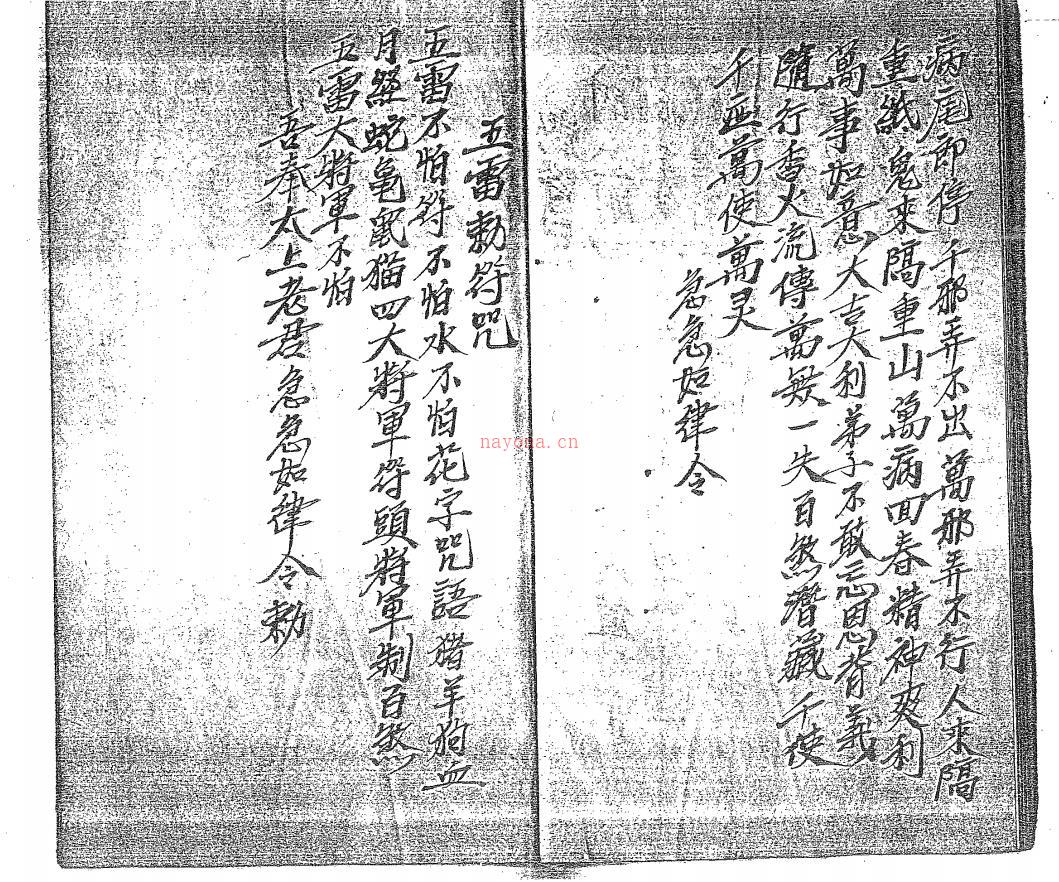 病尾即停千邪弄不出萬邪弄不行人來隔
重紙鬼來隔重山萬病回春精神爽利
萬事如意大吉大利弟子不敢忘恩背義
隨行香火流傳萬無一失百煞潛藏千使
千正萬使萬灵
急急如律令
五雷勅符咒
五雷不怕符不怕水不怕花字咒語猪羊狗血
月經蛇龟鼠猫四大將軍符頭將軍制百煞
五雷大將軍不怕
吾奉太上老君急急如律令勅
nayona.cn